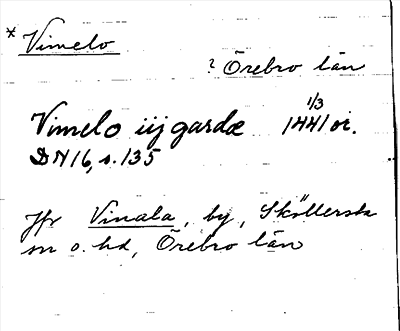 * Vimelo
? Örebro län
Vimelo iij gardæ 1/3 1441 or.
DN 16, s. 135
Jfr Vinala, by, Sköllersta
sn o. hd, Örebro län